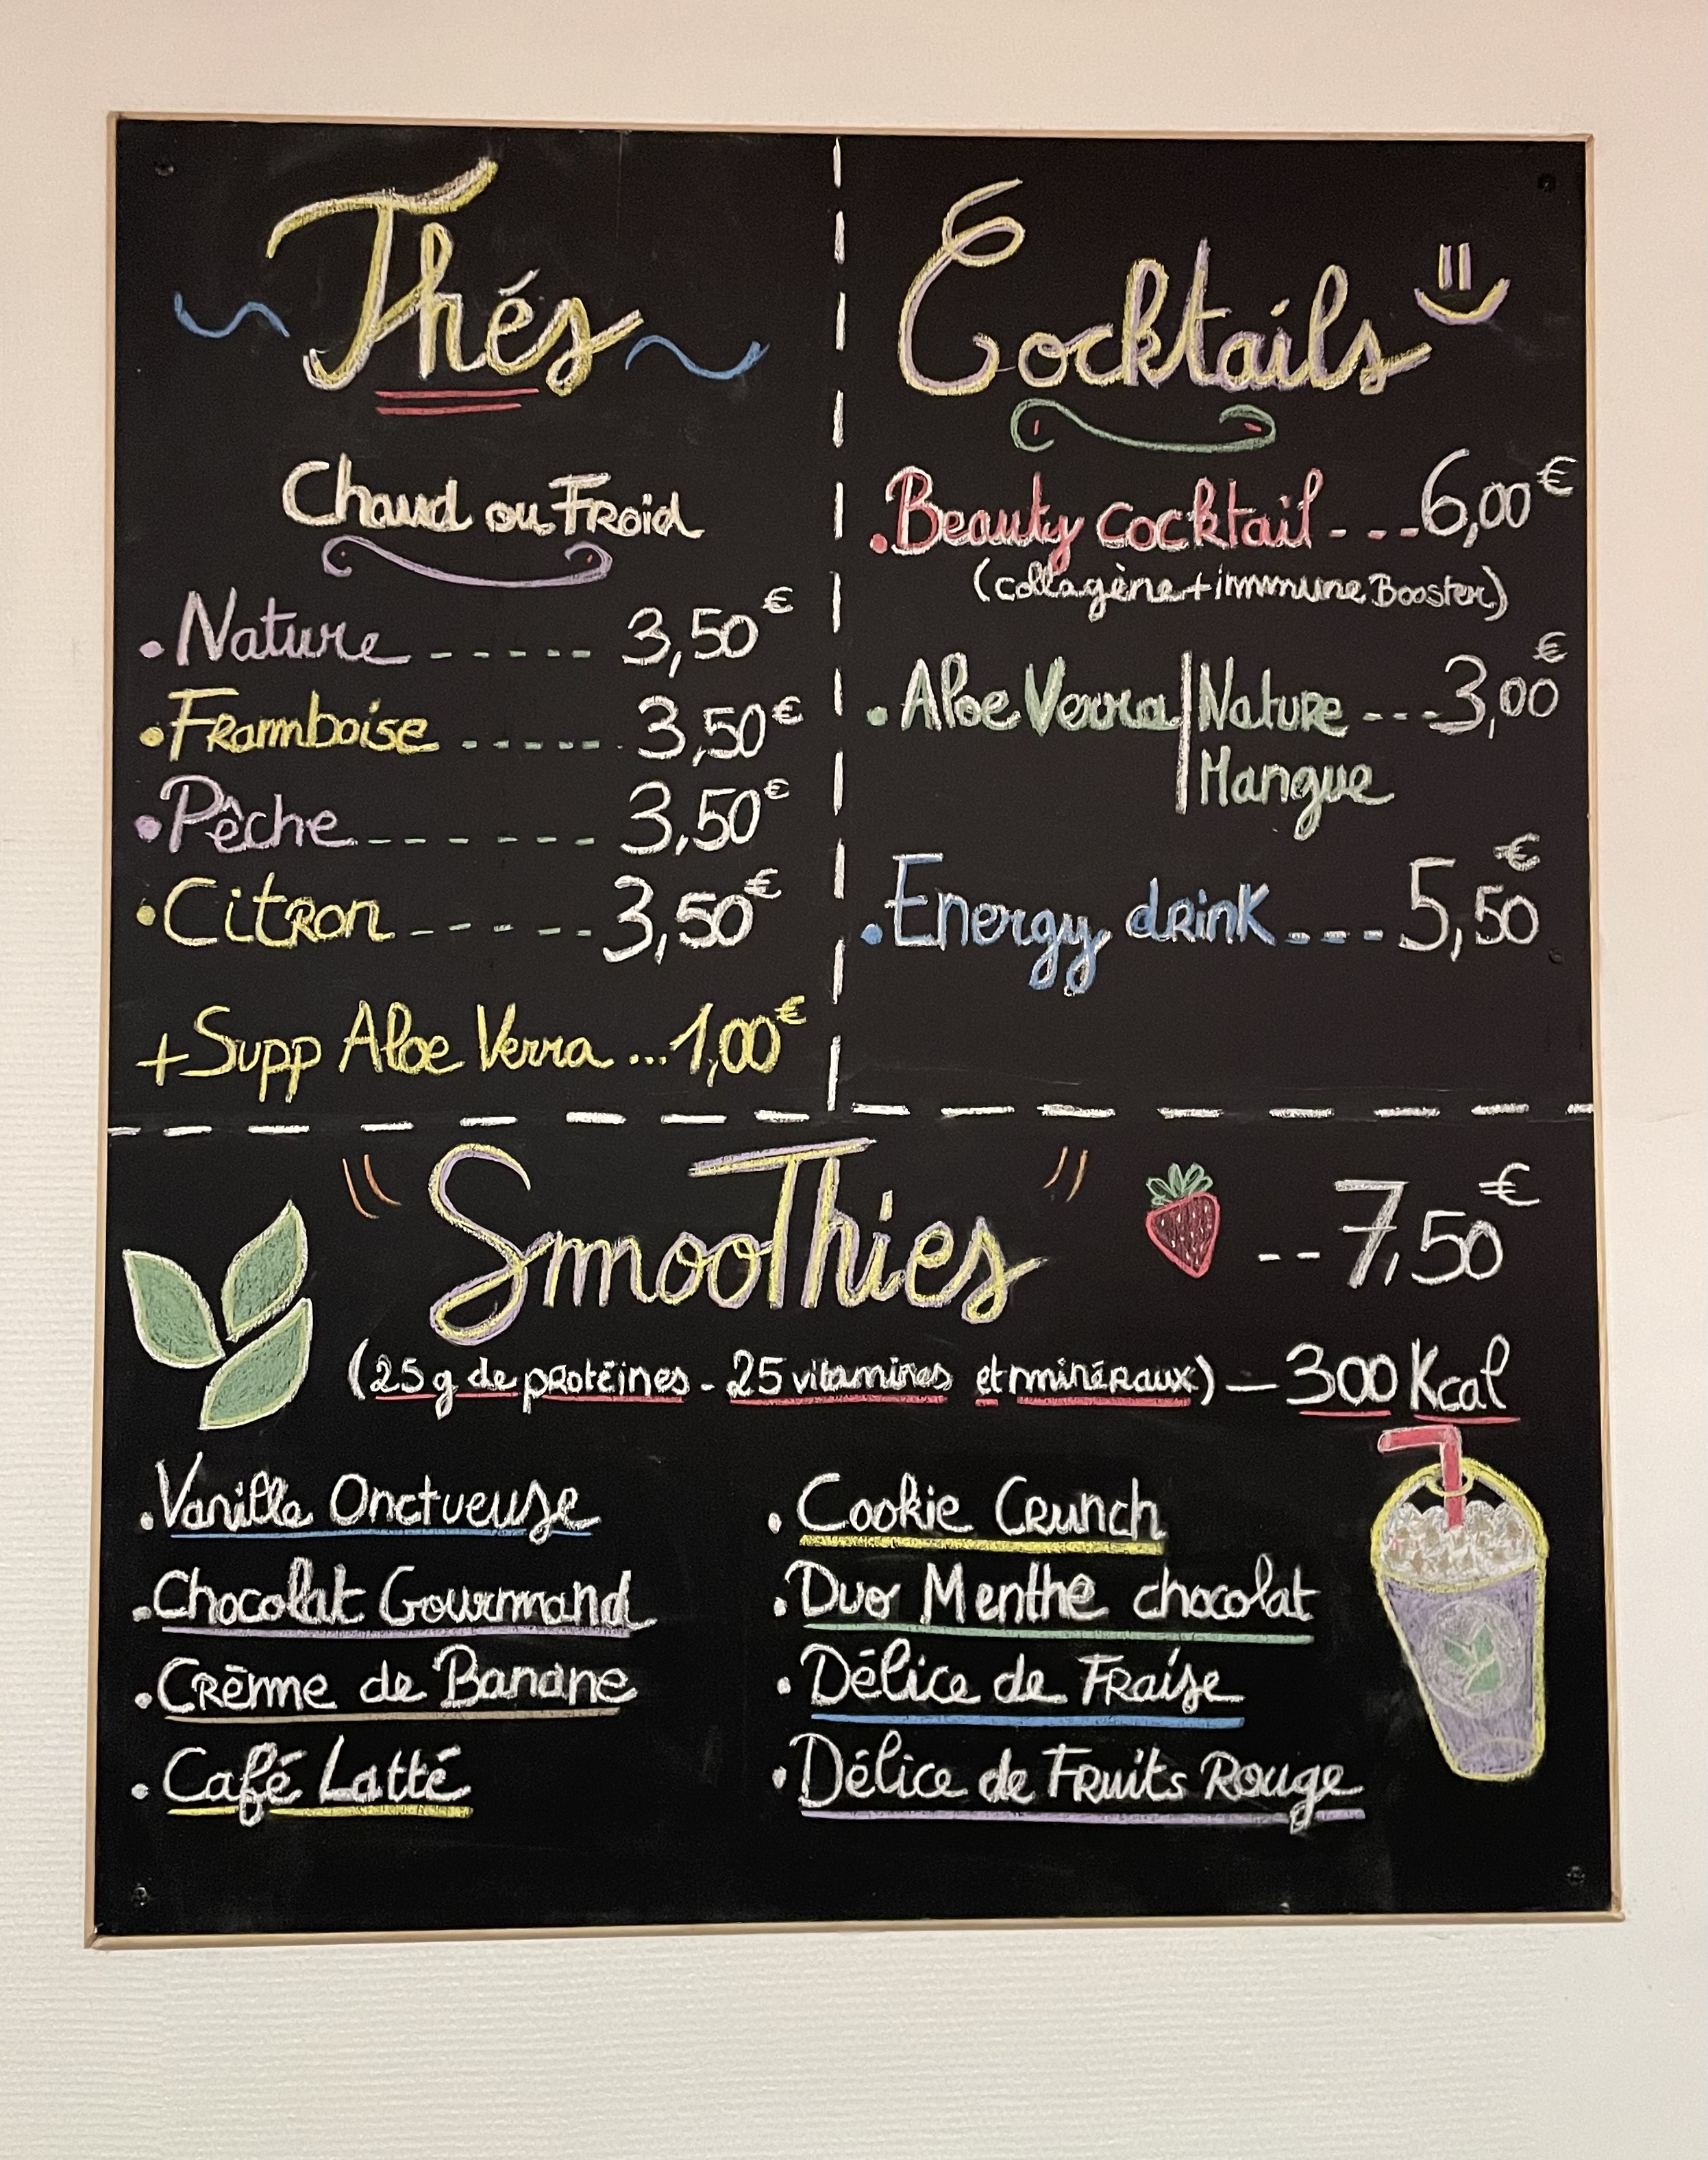 Thés
Chaud ou Froid
• Nature ----- 3,50€
• Framboise ----- 3,50€
• Pêche ------- 3,50€
• Citron ----- 3,50€
+ Supp Aloe Verra ... 1,00€
Cocktails
• Beauty cocktail --- 6,00€
(collagène + immune Booster)
• Aloe Verra | Nature --- 3,00€
Mangue
• Energy drink --- 5,50€
Smoothies -- 7,50€
(25g de protéines - 25 vitamines et minéraux) — 300 Kcal
• Vanille Onctueuse
• Chocolat Gourmand
• Crème de Banane
• Café Latté
• Cookie Crunch
• Duo Menthe chocolat
• Délice de Fraise
• Délice de Fruits Rouge